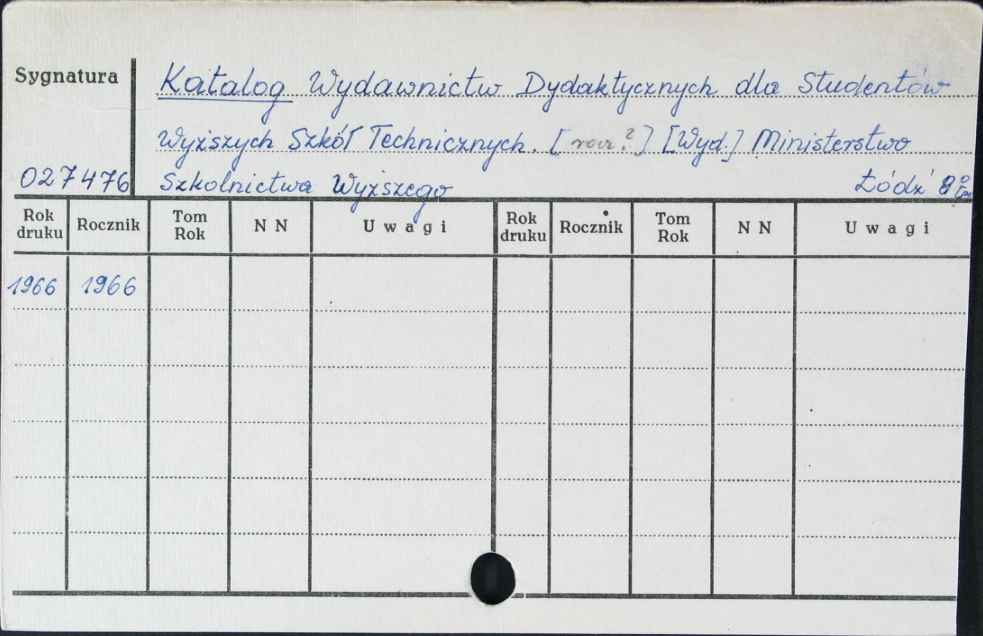 Sygnatura
Katalog Wydawnictw Dydaktycznych dla Studentów
Wyższych Szkół Technicznych. [rocz?] [Wyd.] Ministerstwo
027476 Szkolnictwa Wyższego Łódź 8º
Rok druku Rocznik Tom Rok N N Uwagi Rok druku Rocznik Tom Rok N N Uwagi
1966 1966